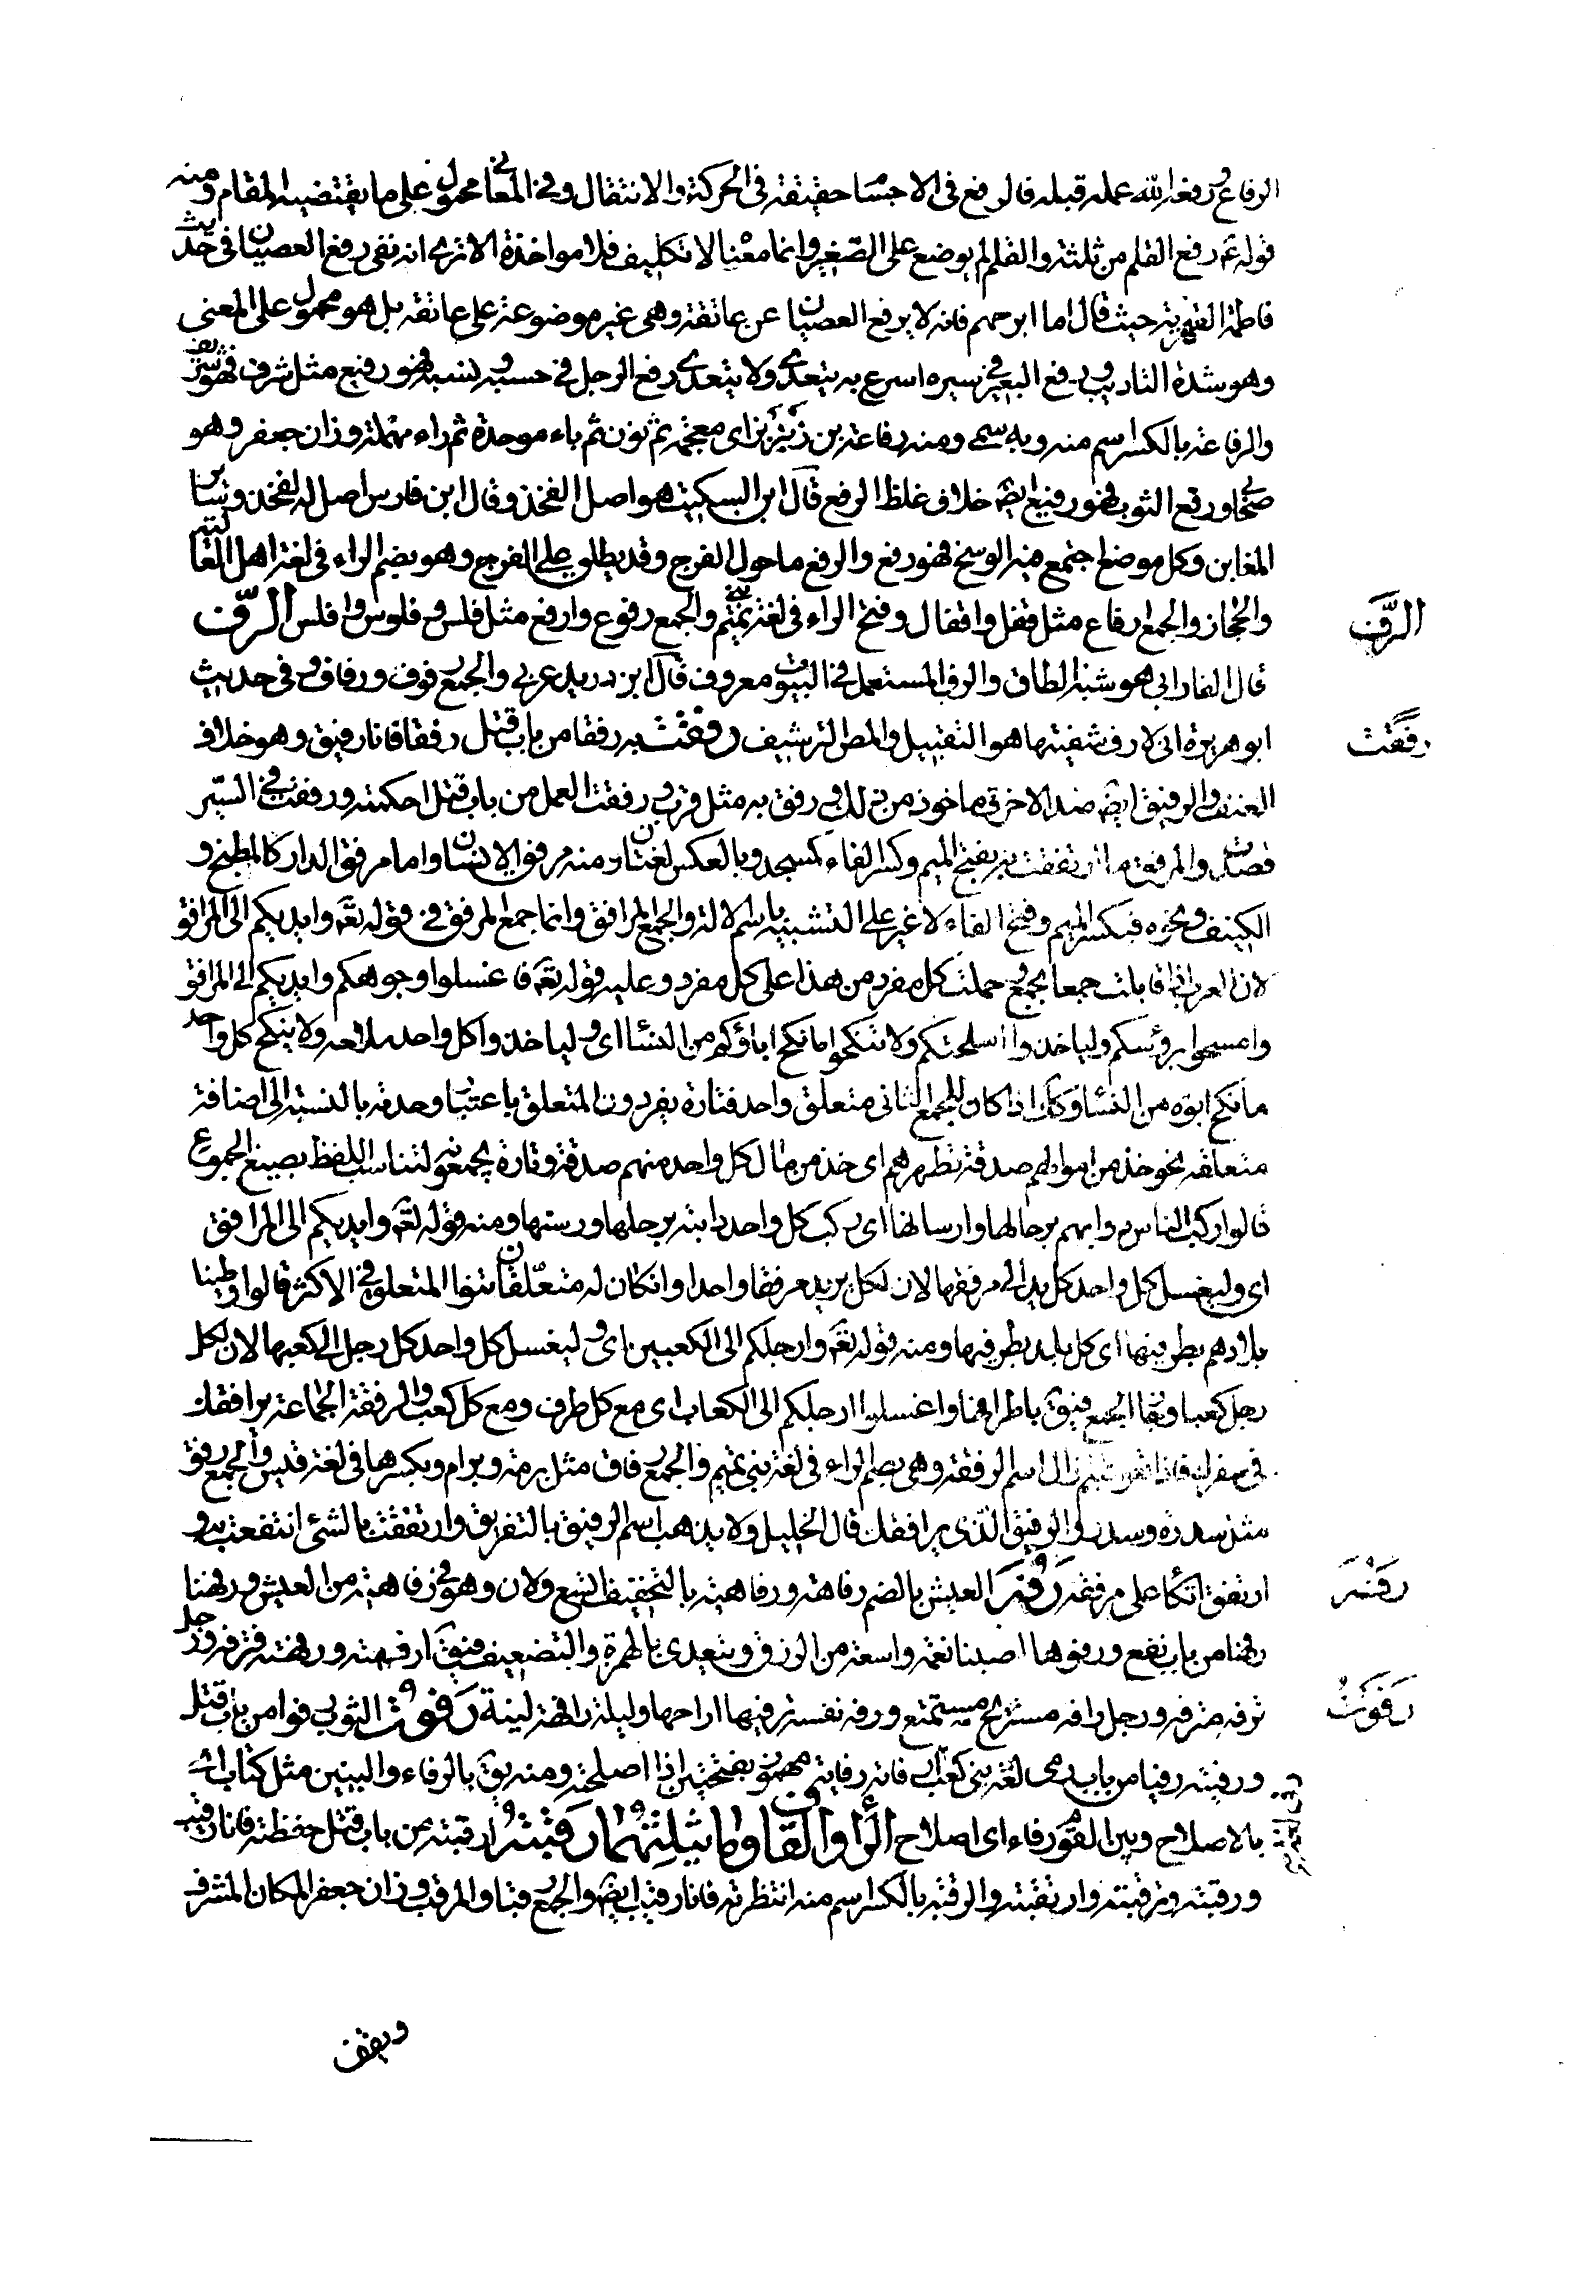 الرفاع ورفع الله عمله قبله فالرفع فى الاجسام حقيقة فى الحركة والانتقال وفى المعانى محمول على ما يقتضيه المقام ومنه
قوله عم رفع القلم من ثلثة والقلم لم يوضع على الصغير وانما معناه لا تكليف فلا مواخذة الا ترى انه نفى رفع العصيان فى حديث
فاطمة الفهرية حيث قال اما ابو جهم فانه لا يرفع العصيان عن عاتقه وهى غير موضوعة على عاتقه بل هو محمول على المعنى
وهو شدة التاديب ورفع البعير فى سيره اسرع به يتعدى ولا يتعدى رفع الرجل فى حسبه ونسبه فهو رفيع مثل شرف فهو شريف
والرفاعة بالكسر اسم منه وبه سمى ومنه رفاعة بن زنبر بزاى معجمة ثم نون ثم باء موحدة ثم راء مهملة وزان جعفر وهو
صحابى ورفع الثوب فهو رفيع ايضا خلاف غلظ الرفع قال ابن السكيت هو اصل الفخذ وقال ابن فارس اصل الفخذ وسائر
المغابن وكل موضع اجتمع فيه الوسخ فهو رفع والرفع ما حول الفرج وقد يطلق على الفرج وهو بضم الراء فى لغة اهل العالية
والحجاز والجمع ارفاع مثل قفل واقفال وفتح الراء فى لغة بنى تميم والجمع رفوع وارفع مثل فلس وفلوس وافلس الرَّف
قال الفارابى هو شبه الطاق والرف المستعمل فى البيوت معروف قال ابن دريد عربى والجمع رفوف ورفاف وفى حديث
ابو هريرة انى لارف شفتيها هو التقبيل والمص والترشيف رفقت به رفقا من باب قتل رفقا فانا رفيق وهو خلاف
العنف والرفيق ايضا ضد الاخرق ماخوذ من ذلك ورفق به مثل قرب ورفقت العمل من باب قتل احكمته ورفقت فى السير
قصدت والمرفق ما ارتفقت به بفتح الميم وكسر الفاء كمسجد وبالعكس لغتان ومنه مرفق الانسان واما مرفق الدار كالمطبخ و
الكنيف ونحوه فبكسر الميم وفتح الفاء لا غير على التشبيه باسم الالة والجمع المرافق وانما جمع المرفق فى قوله تعه وايديكم الى المرافق
لان العرب اذا قابلت جمعا بجمع حملت كل مفرد من هذا على كل مفرد وعليه قوله تعه فاغسلوا وجوهكم وايديكم الى المرافق
وامسحوا برؤسكم ولياخذوا اسلحتكم ولا تنكحوا ما نكح اباؤكم من النساء اى ولياخذ كل واحد سلاحه ولا ينكح كل واحد
ما نكح ابوه من النساء وكذلك اذا كان للجمع الثانى متعلق واحد فتارة يفردون المتعلق باعتبار وحدته بالنسبة الى اضافة
متعلقه نحو خذ من اموالهم صدقة تطهرهم اى خذ من مال كل واحد منهم صدقة وتارة يجمعونه لتناسب اللفظ بصيغ الجموع
قالوا ركب الناس دوابهم برحالها وارسانها اى ركب كل واحد دابته برحلها ورسنها ومنه قوله تعه وايديكم الى المرافق
اى وليغسل كل واحد كل يد الى مرفقها لان لكل يد مرفقا واحدا وان كان له متعلقان ثنوا المتعلق فى الاكثر قالوا وطئنا
بلادهم بطرفيها اى كل بلد بطرفيها ومنه قوله تعه وارجلكم الى الكعبين اى وليغسل كل واحد كل رجل الى كعبيها لان لكل
رجل كعبان ويجوز الجمع فيق باطرافها واغسلوا ارجلكم الى الكعاب اى مع كل طرف ومع كل كعب والرفقة الجماعة ترافقك
فى سفرك فاذا تفرقتم زال اسم الرفقة وهى بضم الراء فى لغة بنى تميم والجمع رفاق مثل برمة وبرام وبكسرها فى لغة قيس والجمع رفق
مثل سدرة وسدر والرفيق الذى يرافقك قال الخليل ولا يذهب اسم الرفيق بالتفريق وارتفقت بالشئ انتفعت به و
ارتفق اتكا على مرفقه رَفُهَ العيش بالضم رفاهة ورفاهية بالتخفيف اتسع ولان وهو فى رفاهية من العيش ورفهنا
رفها من باب نفع ورفوها اصبنا نعمة واسعة من الرزق ويتعدى بالهمزة والتضعيف فيق ارفهته ورفهته فترفه ورجل
ترفه مترفه ورجل رافه مستريح مستمتع ورفه نفسه ترفيها اراحها وليلة رافهة لينة رفوت الثوب رفوا من باب قتل
ورفيته رفيا من باب رمى لغة بنى كعب رفاته رفاية مهموز بفتحتين اذا اصلحته ومنه يق بالرفاء والبنين مثل كتاب اى
بالاصلاح وبين القوم رفاء اى اصلاح الرَّاء والقاف وما يثلثهما رقبته ارقبته من باب قتل حفظته فانا رقيب
ورقبته وترقبته وارتقبته والرقبة بالكسر اسم منه انتظرته فانا رقيب ايضا والجمع رقباء والمرقب وزان جعفر المكان المشرف
ويقف
الرَّف
رَفَقت
رَفُهَ
رَفَوْتُ